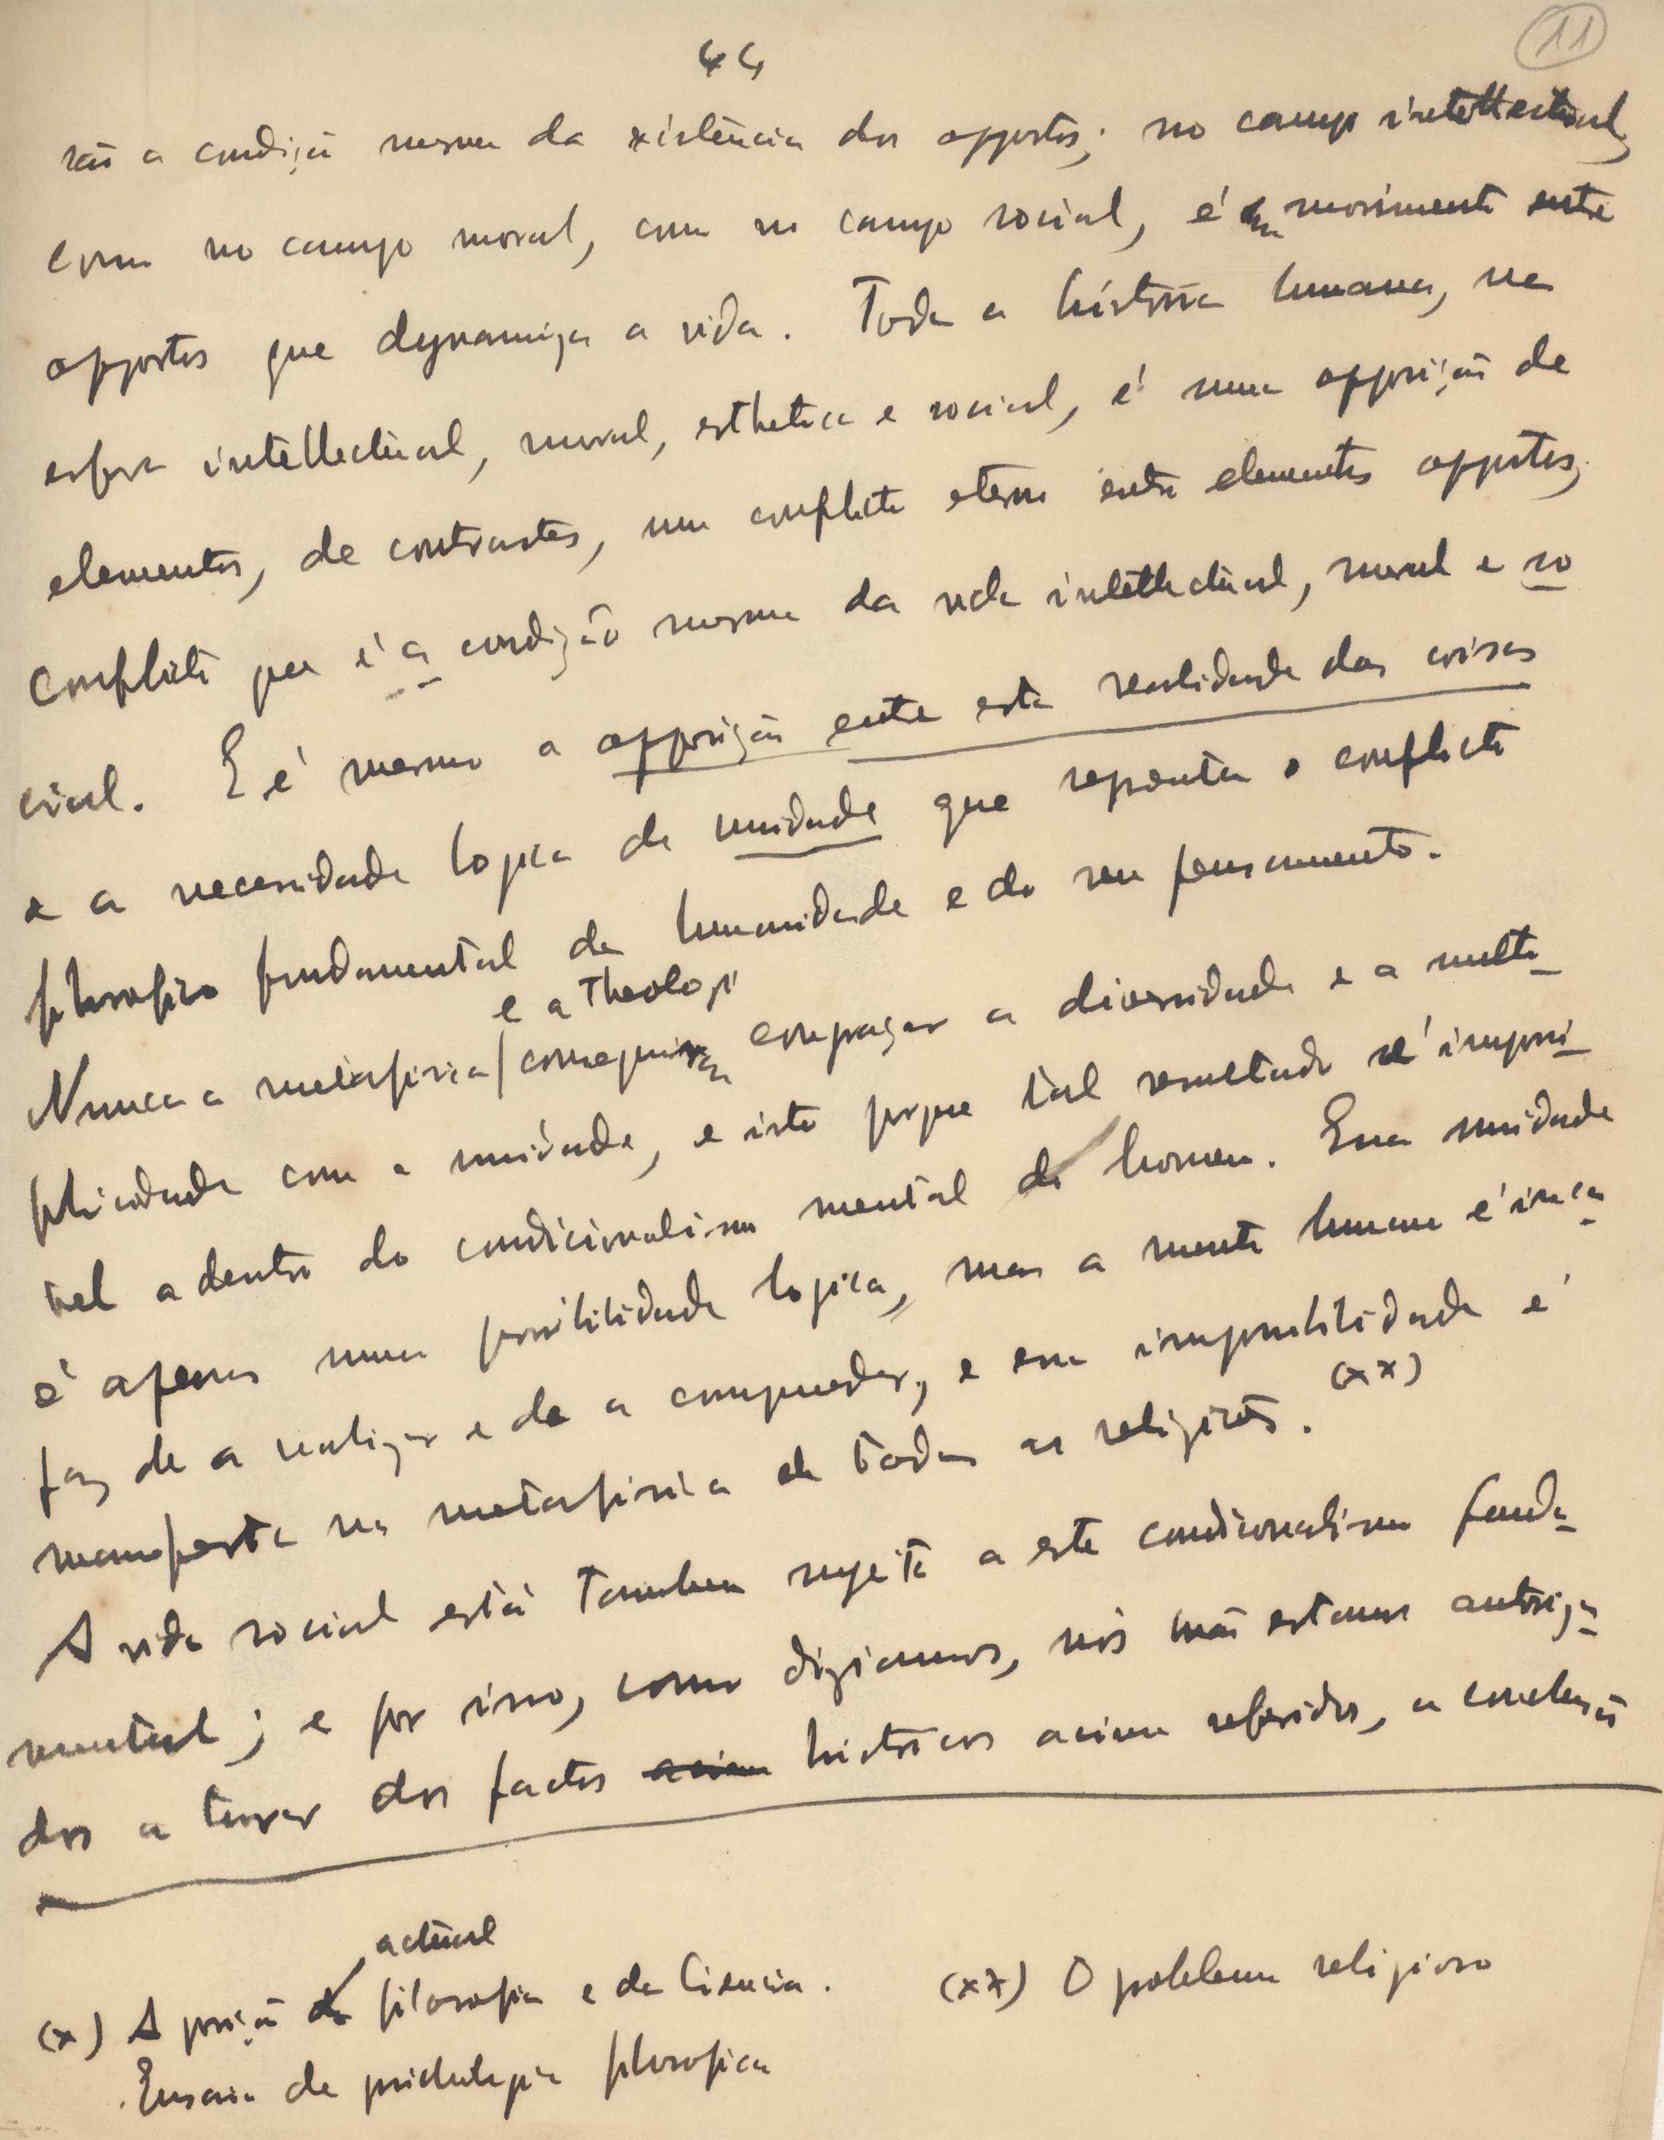 44
11
são a condição mesma da existencia dos oppostos; no campo intellectual,
como no campo moral, como no campo social, é um movimento entre
oppostos que dynamiza a vida. Toda a história humana, na
esfera intellectual, moral, esthetica e social, é uma opposição de
elementos, de contrastes, um conflicto eterno entre elementos oppostos,
conflicto que é a condição mesma da vida intellectual, moral e so
cial. E é mesmo a opposição entre esta realidade das coisas
e a necessidade logica da unidade que representa o conflicto
filosofico fundamental da humanidade e do seu pensamento.
e a Theologi
Nunca a metafisica conseguiram compaçar a diversidade e a multi-
plicidade com a unidade, e isto porque tal resultado é impossi-
vel adentro do condicionalismo mental do homem. Essa unidade
é apenas uma possibilidade logica, mas a mente humana é inca-
paz de a realizar e de a comprender, e essa impossibilidade é
manifesta na metafisica de todas as religiões. (xx)
A vida social está tambem sujeita a este condicionalismo funda-
mental; e por isso, como diziamos, nós não estamos autoriza-
dos a tirar dos factos acima historicos acima referidos, a conclusão
actual
(x) A posição da filosofia e da Ciencia.
Ensaio de psichologia filosofica
(xx) O problema religioso